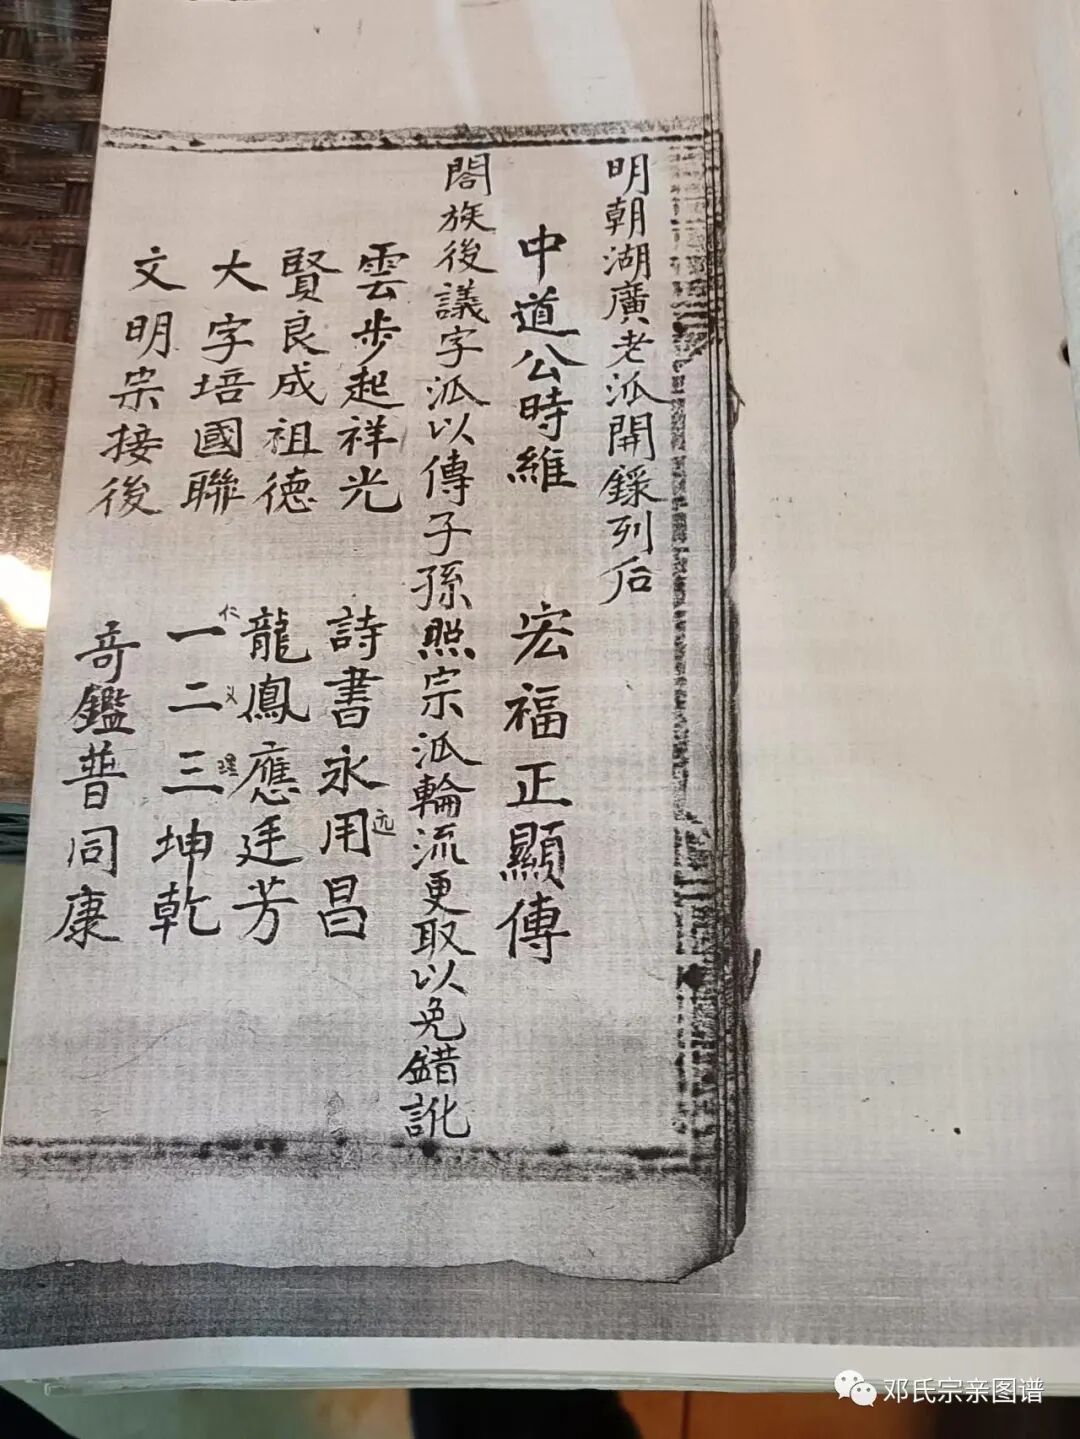 明朝湖廣老泒開錄列后
中道公時維 宏福正顯傳
閤族後議字泒以傳子孫照宗泒輪流更取以免錯訛
雲步起祥光 詩書永用昌
远
賢良成祖德 龍鳳應廷芳
大字培國聯 一二三坤乾
仁义
文明宗接後 奇鑑普同康
邓氏宗亲图谱